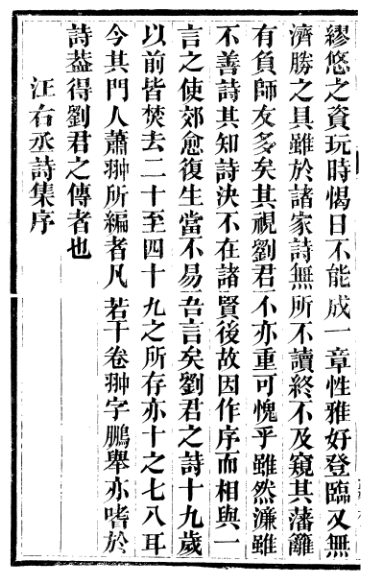 繆悠之資玩時愒日不能成一章性雅好登臨又無
濟勝之具雖於諸家詩無所不讀終不及窺其藩籬
有負師友多矣其視劉君不亦重可愧乎雖然濂雖
不善詩其知詩決不在諸賢後故因作序而相與一
言之使郊愈復生當不易吾言矣劉君之詩十九歲
以前皆焚去二十至四十九之所存亦十之七八耳
今其門人蕭翀所編者凡若干卷翀字鵬舉亦嗜於
詩葢得劉君之傳者也
汪右丞詩集序